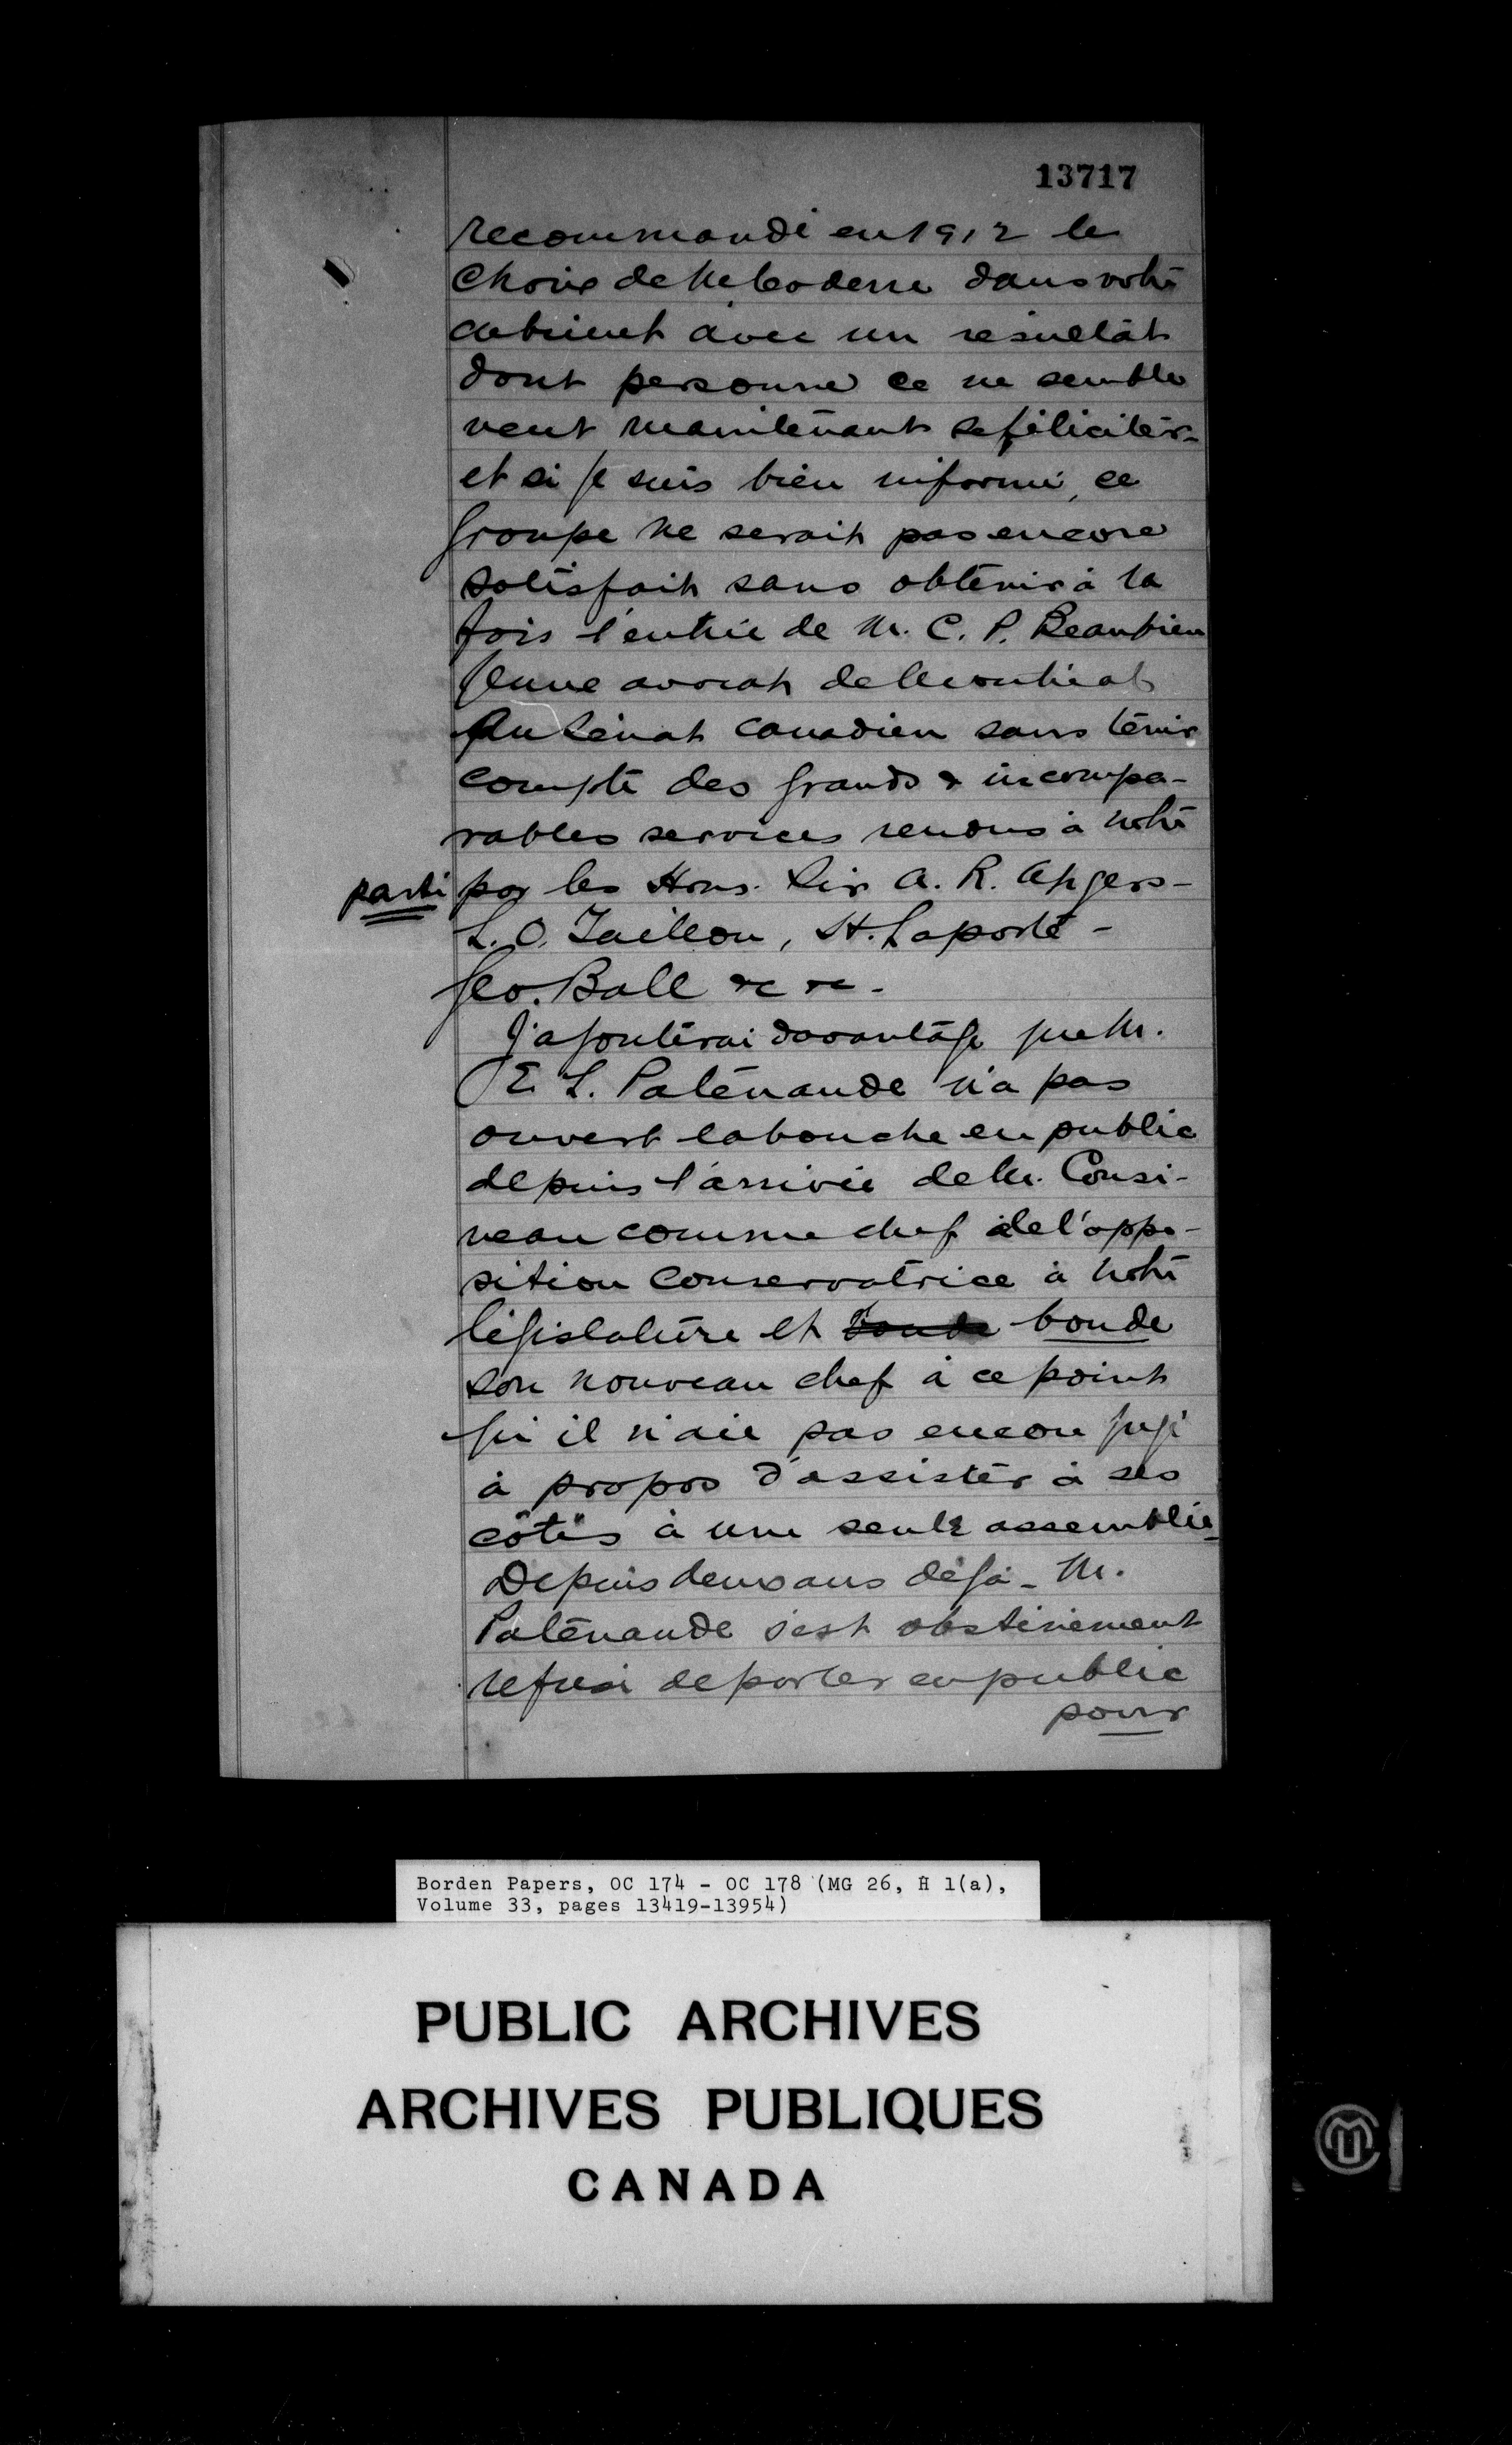 13717
recommandé en 1912 le
choix de M. Coderre dans votre
cabinet avec un résultat
dont personne ce me semble
veut maintenant se féliciter -
et si je suis bien informé, ce
groupe ne serait pas encore
satisfait sans obtenir à la
fois l'entrée de M. C. P. Beaubien
jeune avocat de Montréal
au Sénat canadien sans tenir
compte des grands & incompa-
rables services rendus à notre
parti par les Hons. Sir A. R. Angers -
L. O. Taillon, H. Laporte -
Geo. Ball &c &c -
J'ajouterai davantage que M.
E. L. Patenaude n'a pas
ouvert la bouche en public
depuis l'arrivée de M. Cousi-
neau comme chef de l'oppo-
sition conservatrice à notre
législature et boude boude
son nouveau chef à ce point
qu'il n'aie pas encore jugé
à propos d'assister à ses
côtés à une seule assemblée -
Depuis deux ans déjà - M.
Patenaude s'est obstinément
refusé de parler en public
pour
Borden Papers, OC 174 - OC 178 (MG 26, H 1(a),
Volume 33, pages 13419-13954)
PUBLIC ARCHIVES
ARCHIVES PUBLIQUES
CANADA